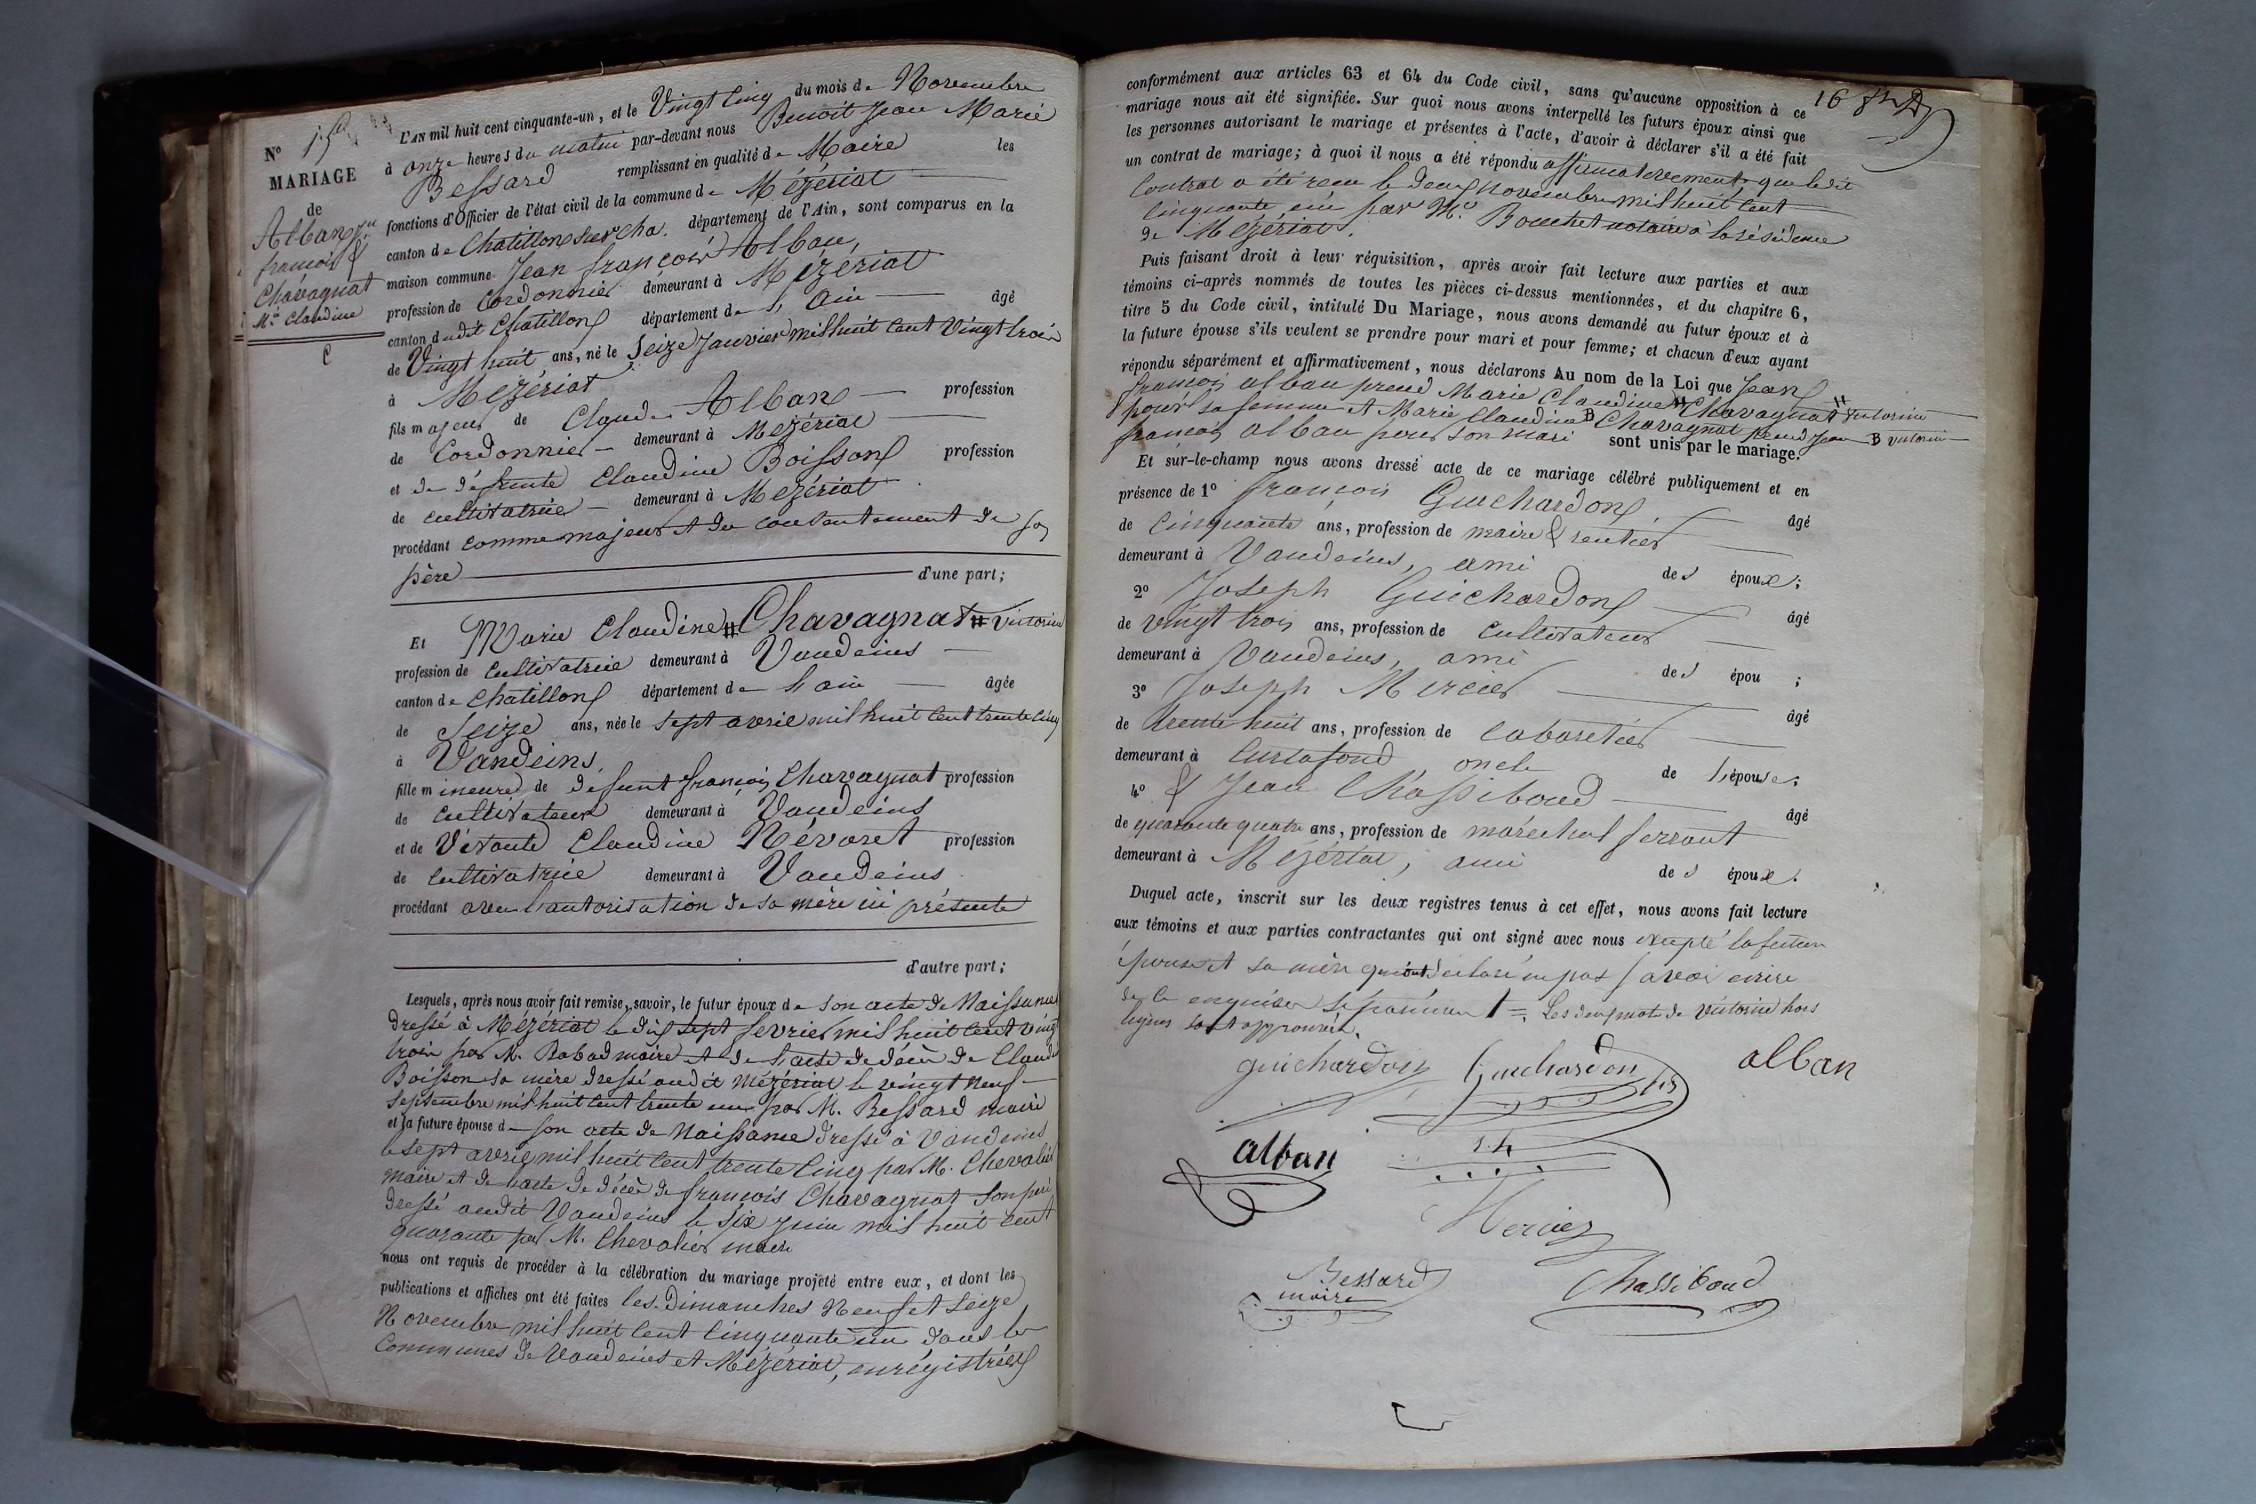 N° 15
MARIAGE
de
Alban Jn
françois &
Chavagnat
Mie Claudine
L'AN mil huit cent cinquante-un, et le Vingt cinq du mois de Novembre
à onze heures du matin par-devant nous Benoit Jean Marie
Bessard remplissant en qualité de Maire les
fonctions d'Officier de l'état civil de la commune de Mézériat
canton de Chatillon sur Cha. département de l'Ain, sont comparus en la
maison commune Jean françois Alban,
profession de Cordonnier demeurant à Mézériat
canton dudit Chatillon département de l'Ain âgé
de Vingt huit ans, né le Seize Janvier mil huit cent Vingt trois
à Mézériat
fils majeur de Claude Alban profession
de Cordonnier demeurant à Mézériat
et de défunte Claudine Boisson profession
de cultivatrice demeurant à Mézériat
procédant comme majeur et du consentement de son
père d'une part;
Et Marie Claudine # Chavagnat # Victorine
profession de cultivatrice demeurant à Vandeins
canton de Chatillon département de l'ain âgée
de Seize ans, née le sept avril mil huit cent trente cinq
à Vandeins,
fille mineure de défunt françois Chavagnat profession
de cultivateur demeurant à Vandeins
et de Vivante Claudine Névoret profession
de cultivatrice demeurant à Vandeins
procédant avec l'autorisation de sa mère ici présente
d'autre part;
Lesquels, après nous avoir fait remise, savoir, le futur époux de son acte de Naissance
dressé à Mézériat le dix sept fevrier mil huit cent vingt
trois par M. Rabad maire et de l'acte de décès de Claudi
Boisson sa mère dressé audit Mézériat le vingt neuf
septembre mil huit cent trente un par M. Bessard maire
et la future épouse de son acte de Naissance dressé à Vandeins
le sept avril mil huit cent trente cinq par M. Chevalier
maire et de l'acte de décès de françois Chavagnat son père
dressé audit Vandeins le six juin mil huit cent
quarante par M. Chevalier maire
nous ont requis de procéder à la célébration du mariage projeté entre eux, et dont les
publications et affiches ont été faites les Dimanches Neuf et Seize
Novembre mil huit cent cinquante un dans les
Communes de Vandeins et Mézériat, enrégistrées
16
conformément aux articles 63 et 64 du Code civil, sans qu'aucune opposition à ce
mariage nous ait été signifiée. Sur quoi nous avons interpellé les futurs époux ainsi que
les personnes autorisant le mariage et présentes à l'acte, d'avoir à déclarer s'il a été fait
un contrat de mariage; à quoi il nous a été répondu affirmativement que ledit
Contrat a été recu le deux novembre mil huit cent
cinquante un par Me Bouchet notaire à la résidence
de Mézériat.
Puis faisant droit à leur réquisition, après avoir fait lecture aux parties et aux
témoins ci-après nommés de toutes les pièces ci-dessus mentionnées, et du chapitre 6,
titre 5 du Code civil, intitulé Du Mariage, nous avons demandé au futur époux et à
la future épouse s'ils veulent se prendre pour mari et pour femme; et chacun d'eux ayant
répondu séparément et affirmativement, nous déclarons Au nom de la Loi que Jean
françois alban prend Marie Claudine # Chavagnat # Victorine
pour sa femme et Marie Claudine B Chavagnat prend Jean B victorine
françois alban pour son mari sont unis par le mariage.
Et sur-le-champ nous avons dressé acte de ce mariage célébré publiquement et en
présence de 1° françois Guichardon âgé
de cinquante ans, profession de maire & rentier
demeurant à Vandeins, ami des époux;
2° Joseph Guichardon âgé
de vingt trois ans, profession de cultivateur
demeurant à Vandeins, ami des épou ;
3° Joseph Mercier âgé
de trente huit ans, profession de cabaretier
demeurant à Curtafond oncle de l'épouse;
4° & Jean Chassiboud âgé
de quarante quatre ans, profession de maréchal ferrant
demeurant à Mézériat, ami des époux.
Duquel acte, inscrit sur les deux registres tenus à cet effet, nous avons fait lecture
aux témoins et aux parties contractantes qui ont signé avec nous excepté la future
épouse et sa mère qui ont déclaré ne pas savoir écrire
de ce enquises Les deux mots de Victorine hors
lignes sont approuvés.
guichardon Guichardon fils alban
alban
Mercier
Bessard
maire
Chassiboud